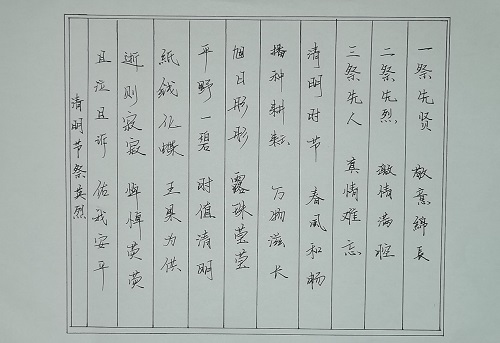 一祭先贤 敬意綿长
二祭先烈 激情满腔
三祭先人 真情难忘
清明时节 春风和畅
播种耕耘 万物滋长
旭日彤彤 露珠莹莹
平野一碧 时值清明
紙钱化蝶 果为供
逝则寂寂
且泣且诉 佑我安平
清明节祭英烈